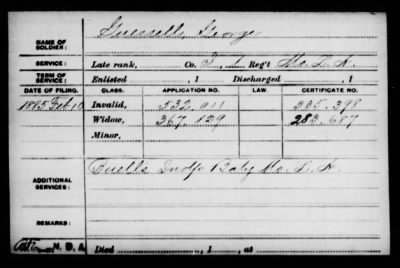 Guessell, George
NAME OF SOLDIER:
SERVICE: Late rank, Co. I, 1 Reg't Mo. L. A.
TERM OF SERVICE: Enlisted , 1 Discharged , 1
DATE OF FILING. CLASS. APPLICATION NO. LAW. CERTIFICATE NO.
1895 Feb 10 Invalid, 532.011 335.398
Widow, 367.129 283.687
Minor,
ADDITIONAL SERVICES: Buell's Indp Baty Mo. L. A.
REMARKS:
N. D. A. Died , 1 , at